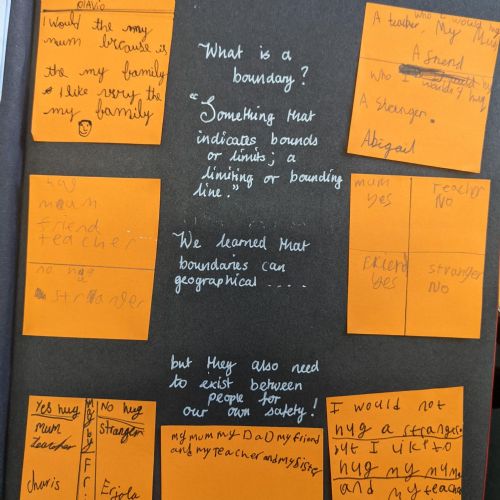 OlAvio
I Would the my
mum brcause is
the my family
I like vrry the
my family
What is a
boundary?
"Something that
indicates bounds
or limits; a
limiting or bounding
line."
A teacher, My Mum
who I would hug
A friend
who I
A Stranger.
Abigail
hug
mum
friend
teacher
no hug
stranger
We learned that
boundaries can
geographical .....
mum
yes
teacher
No
Friend
yes
stranger
No
but they also need
to exist between
people for
our own safety!
Yes hug
mum
teacher
charis
Maybe
Fri
No hug
Stranger
Eriola
my mum my DaD my friend
and my teacher and my sister
I would not
hug a stranger
but I like to
hug my mum
and my teacher